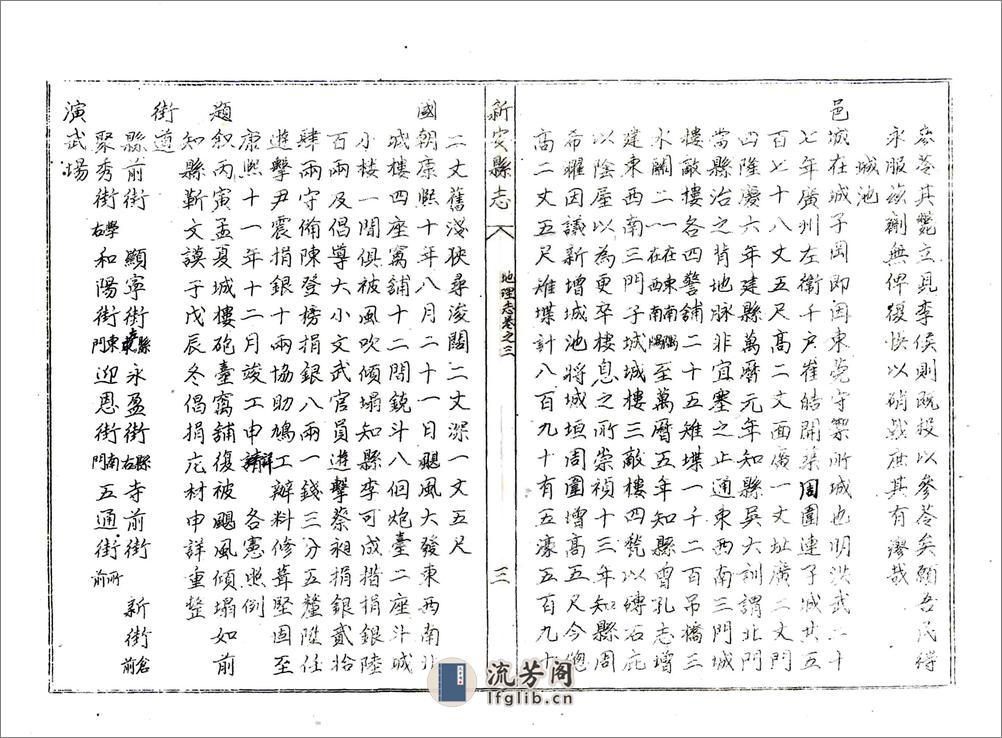 參苓其斃立見李侯則既投以參苓矣願吾民得
永服茲劑無俾復快以硝戕庶其有瘳哉
城池
邑城在城子岡即因東莞守禦所城也明洪武二十
七年廣州左衛千户崔皓開築周圍連子城共五
百七十八丈五尺高二丈面廣一丈址廣二丈門
四隆慶六年建縣萬曆元年知縣吳大訓謂北門
當縣治之背地脉非宜塞之止通東西南三門城
樓敵樓各四警舖二十五雉堞一千二百吊橋三
水關二一在西南隅一在東南隅至萬曆五年知縣曾孔志增
建東西南三門子城城樓三敵樓四甃以磚石庇
以陰屋以為更卒棲息之所崇禎十三年知縣周
希耀因議新增城池將城垣周圍增高五尺今總
高二丈五尺雉堞計八百九十有五濠五百九十
二丈舊淺狹尋浚闊二丈深一丈五尺
國朝康熙十年八月二十一日颶風大發東西南北
城樓四座窩舖十二間銃斗八個炮臺二座斗城
小樓一間俱被風吹傾塌知縣李可成措捐銀陸
百兩及倡導大小文武官員遊擊蔡昶捐銀貳拾
肆兩守備陳登榜捐銀八兩一錢三分五釐陞任
遊擊尹震捐銀十兩協助鳩工辦料修葺堅固至
康熙十一年十二月竣工申請各憲照例
題叙丙寅孟夏城樓砲臺窩舖復被颶風傾塌如前
知縣靳文謨于戊辰冬倡捐庀材申詳重整
街道
縣前街 顯寧街縣東 永盈街縣右 寺前街 新街倉前
聚秀街學右 和陽街東門 迎恩街南門 五通街所前
演武場
新安縣志 地理志卷之三 三
流芳阁
lfglib.cn